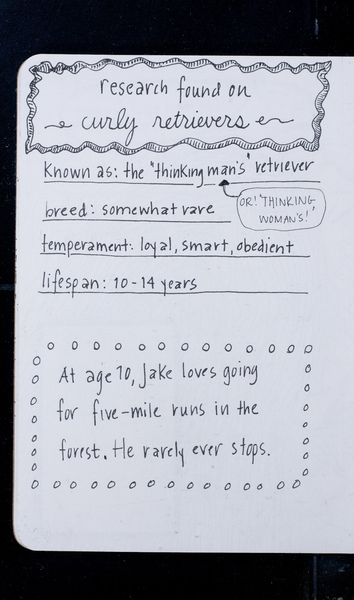 research found on
curly retrievers
Known as: the "thinking man's" retriever
OR! "THINKING
WOMAN'S!"
breed: somewhat rare
temperament: loyal, smart, obedient
lifespan: 10-14 years
At age 10, Jake loves going
for five-mile runs in the
forest. He rarely ever stops.